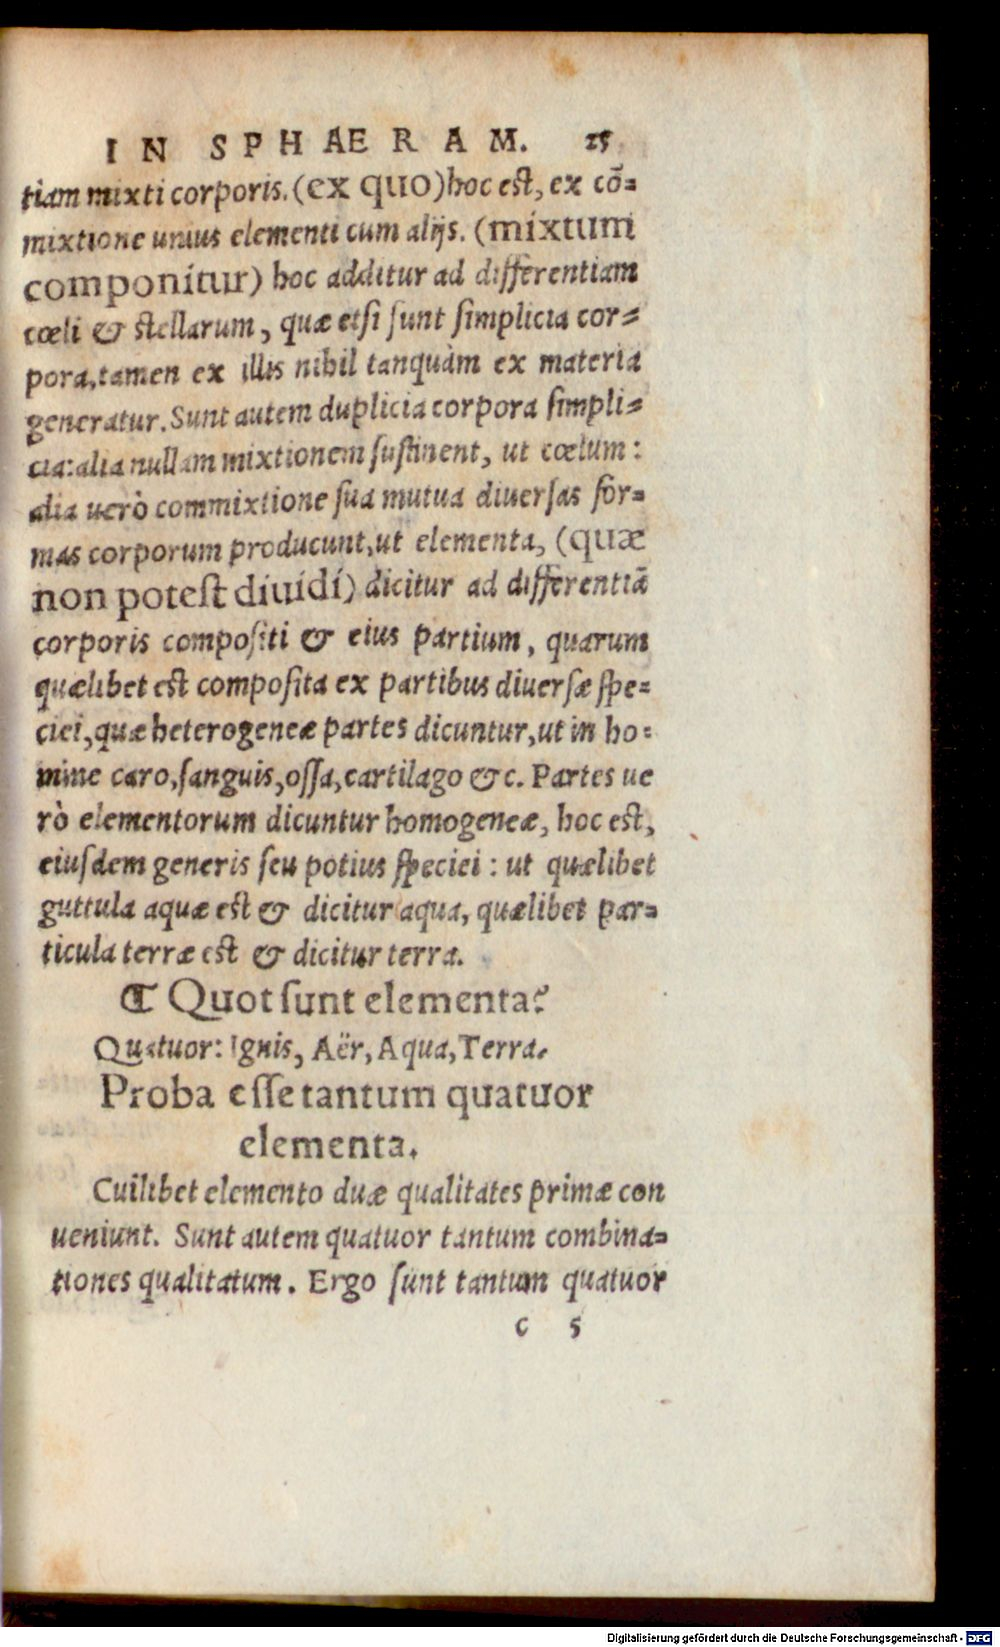 IN SPHAERAM. 25
tiam mixti corporis. (ex quo) hoc est, ex cō=
mixtione unius elementi cum alijs. (mixtum
componitur) hoc additur ad differentiam
cœli & stellarum, quæ etsi sunt simplicia cor=
pora, tamen ex illis nihil tanquàm ex materia
generatur. Sunt autem duplicia corpora simpli=
cia: alia nullam mixtionem sustinent, ut cœlum:
alia uerò commixtione sua mutua diuersas for=
mas corporum producunt, ut elementa, (quæ
non potest diuidi) dicitur ad differentiā
corporis compositi & eius partium, quarum
quælibet est composita ex partibus diuersæ spe=
ciei, quæ heterogeneæ partes dicuntur, ut in ho=
mine caro, sanguis, ossa, cartilago &c. Partes ue
rò elementorum dicuntur homogeneæ, hoc est,
eiusdem generis seu potius speciei: ut quælibet
guttula aquæ est & dicitur aqua, quælibet par=
ticula terræ est & dicitur terra.
¶ Quot sunt elementa?
Quatuor: Ignis, Aër, Aqua, Terra.
Proba esse tantum quatuor
elementa.
Cuilibet elemento duæ qualitates primæ con
ueniunt. Sunt autem quatuor tantum combina=
tiones qualitatum. Ergo sunt tantum quatuor
c 5
Digitalisierung gefördert durch die Deutsche Forschungsgemeinschaft - DFG